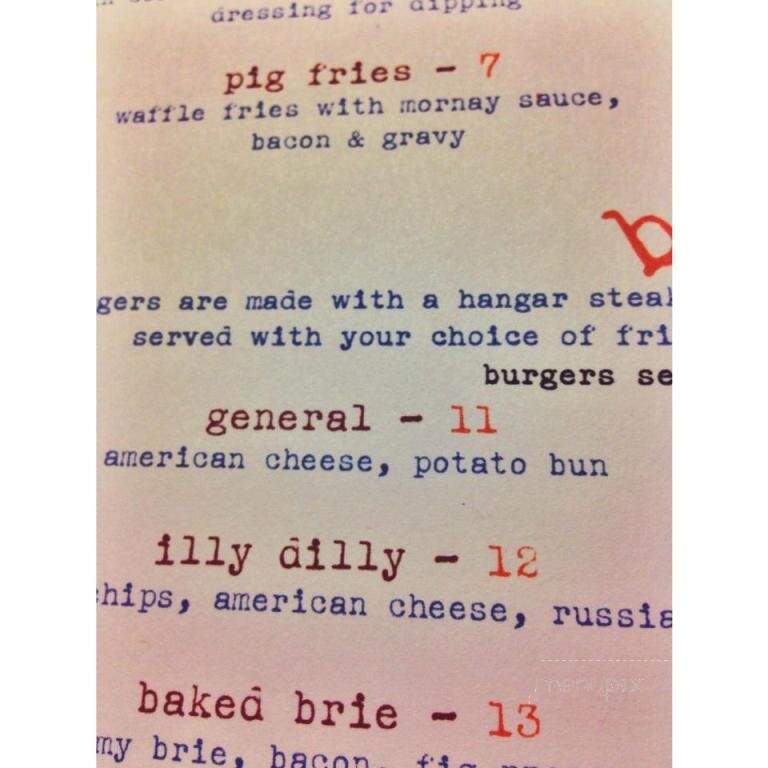 dressing for dipping
pig fries - 7
waffle fries with mornay sauce,
bacon & gravy
b
gers are made with a hangar steak
served with your choice of fri
burgers se
general - 11
american cheese, potato bun
illy dilly - 12
chips, american cheese, russia
baked brie - 13
my brie, bacon, fig
menupix